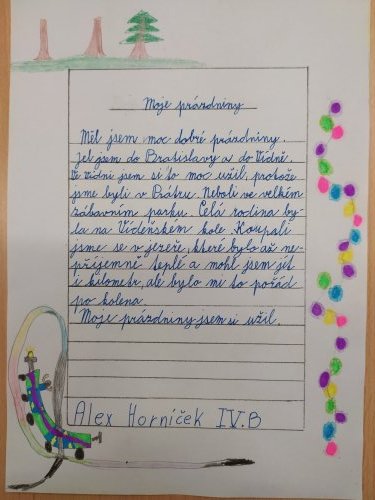 Moje prázdniny
Měl jsem moc dobré prázdniny.
Jel jsem do Bratislavy a do Vídně.
Ve Vídni jsem si to moc užil, protože
jsme byli v Prátru. Neboli ve velkém
zábavním parku. Celá rodina by-
la na Vídeňském kole. Koupali
jsme se v jezeře, které bylo až ne-
příjemně teplé a mohl jsem jít
i kilometr, ale bylo mi to pořád
po kolena.
Moje prázdniny jsem si užil.
Alex Horníček IV.B